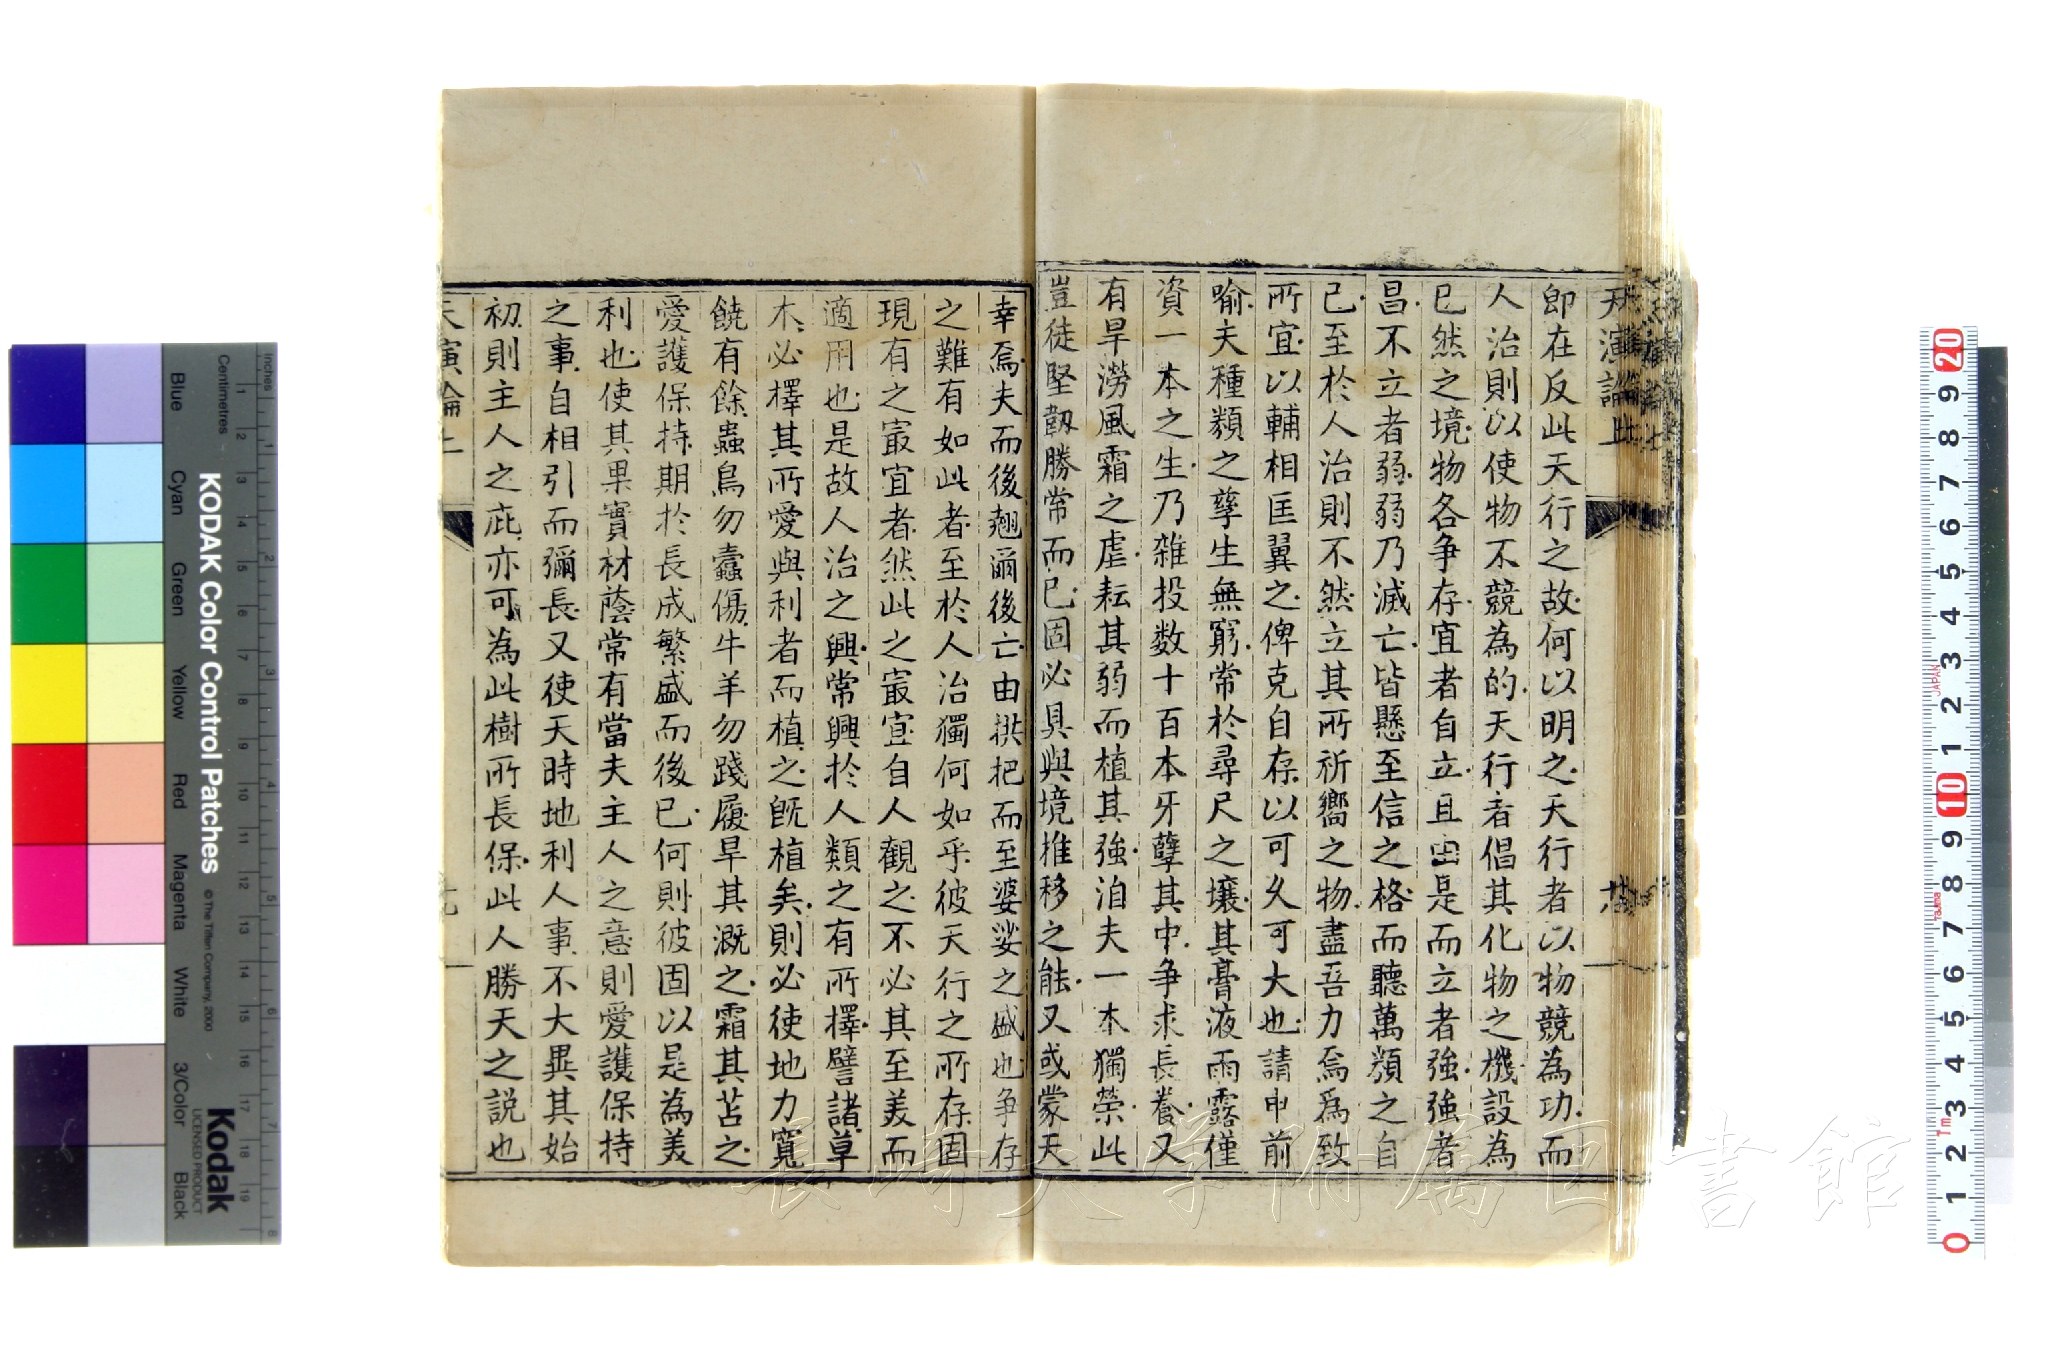 天演論上
即在反此天行之故何以明之天行者以物競為功而
人治則以使物不競為的天行者倡其化物之機設為
已然之境物各争存宜者自立且由是而立者強強者
昌不立者弱弱乃滅亡皆懸至信之格而聽萬類之自
已至於人治則不然立其所祈嚮之物盡吾力焉為致
所宜以輔相匡翼之俾克自存以可久可大也請申前
喻夫種類之孳生無窮常於尋尺之壤其膏液雨露僅
資一本之生乃雜投数十百本牙孽其中争求長養又
有旱澇風霜之虐耘其弱而植其強洎夫一本獨榮此
豈徒堅韌勝常而已固必具與境推移之能又或蒙天
幸焉夫而後翹爾後亡由拱把而至婆娑之盛也争存
之難有如此者至於人治獨何如乎彼天行之所存固
現有之㝡宜者然此之㝡宜自人觀之不必其至美而
適用也是故人治之興常興於人類之有所擇譬諸草
木必擇其所愛與利者而植之既植矣則必使地力寬
饒有餘蟲鳥勿蠹傷牛羊勿踐履旱其溉之霜其苫之
愛護保持期於長成繁盛而後已何則彼固以是為美
利也使其果實材蔭常有當夫主人之意則愛護保持
之事自相引而彌長又使天時地利人事不大異其始
初則主人之庇亦可為此樹所長保此人勝天之説也
天演論上
長崎大学附属図書館
KODAK Color Control Patches
© The Tiffen Company, 2000
Kodak
LICENSED PRODUCT
Inches
Centimetres
Blue
Cyan
Green
Yellow
Red
Magenta
White
3/Color
Black
JAPAN
Tajima